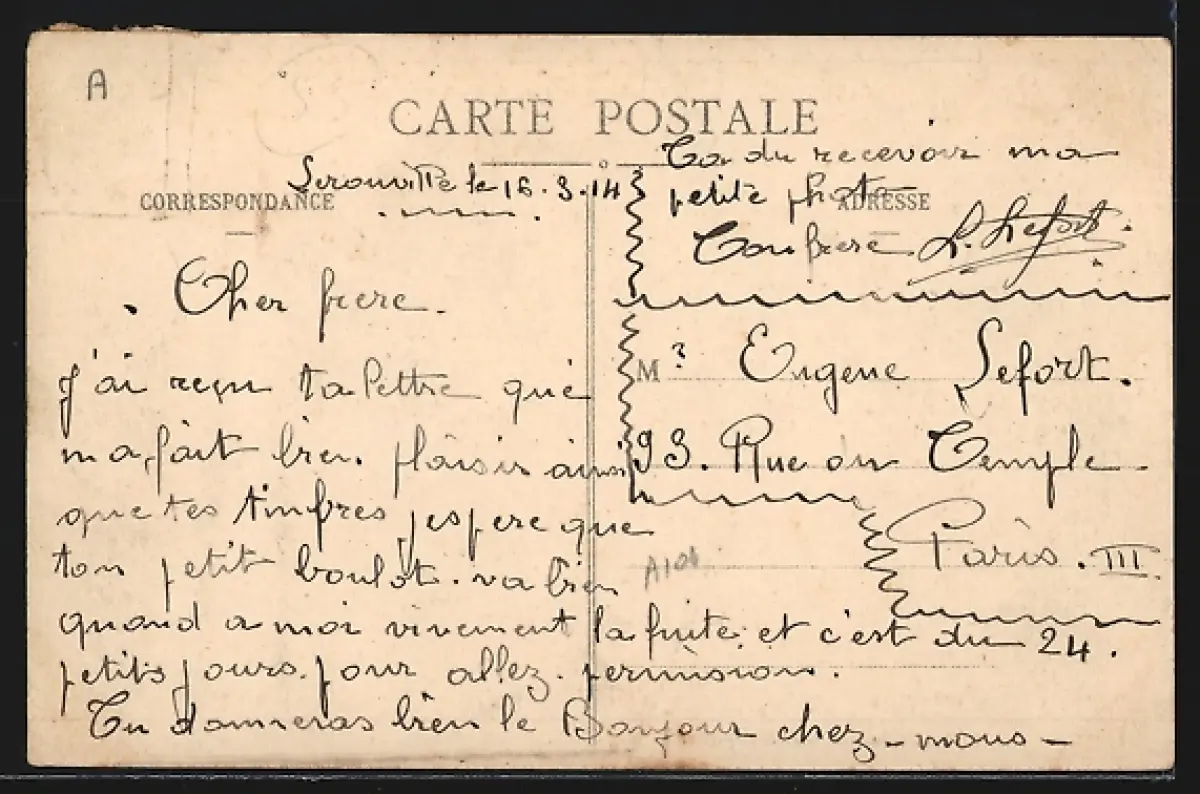 A
CARTE POSTALE
CORRESPONDANCE
ADRESSE
Lerouville le 16.3.14
Cher frere.
J'ai reçu ta lettre que
m a fait bien plaisir ainsi
que tes timbres j espere que
ton petit boulot. va bien
quand a moi vivement la fuite. et c'est du 24.
petits jours. pour allez. permision.
Tu donneras bien le Bonjour chez - nous -
Ta du recevoir ma
petite photo
Ton frere L. Lefort.
Mr Eugene Lefort.
93. Rue du Temple.
Paris. III
A101